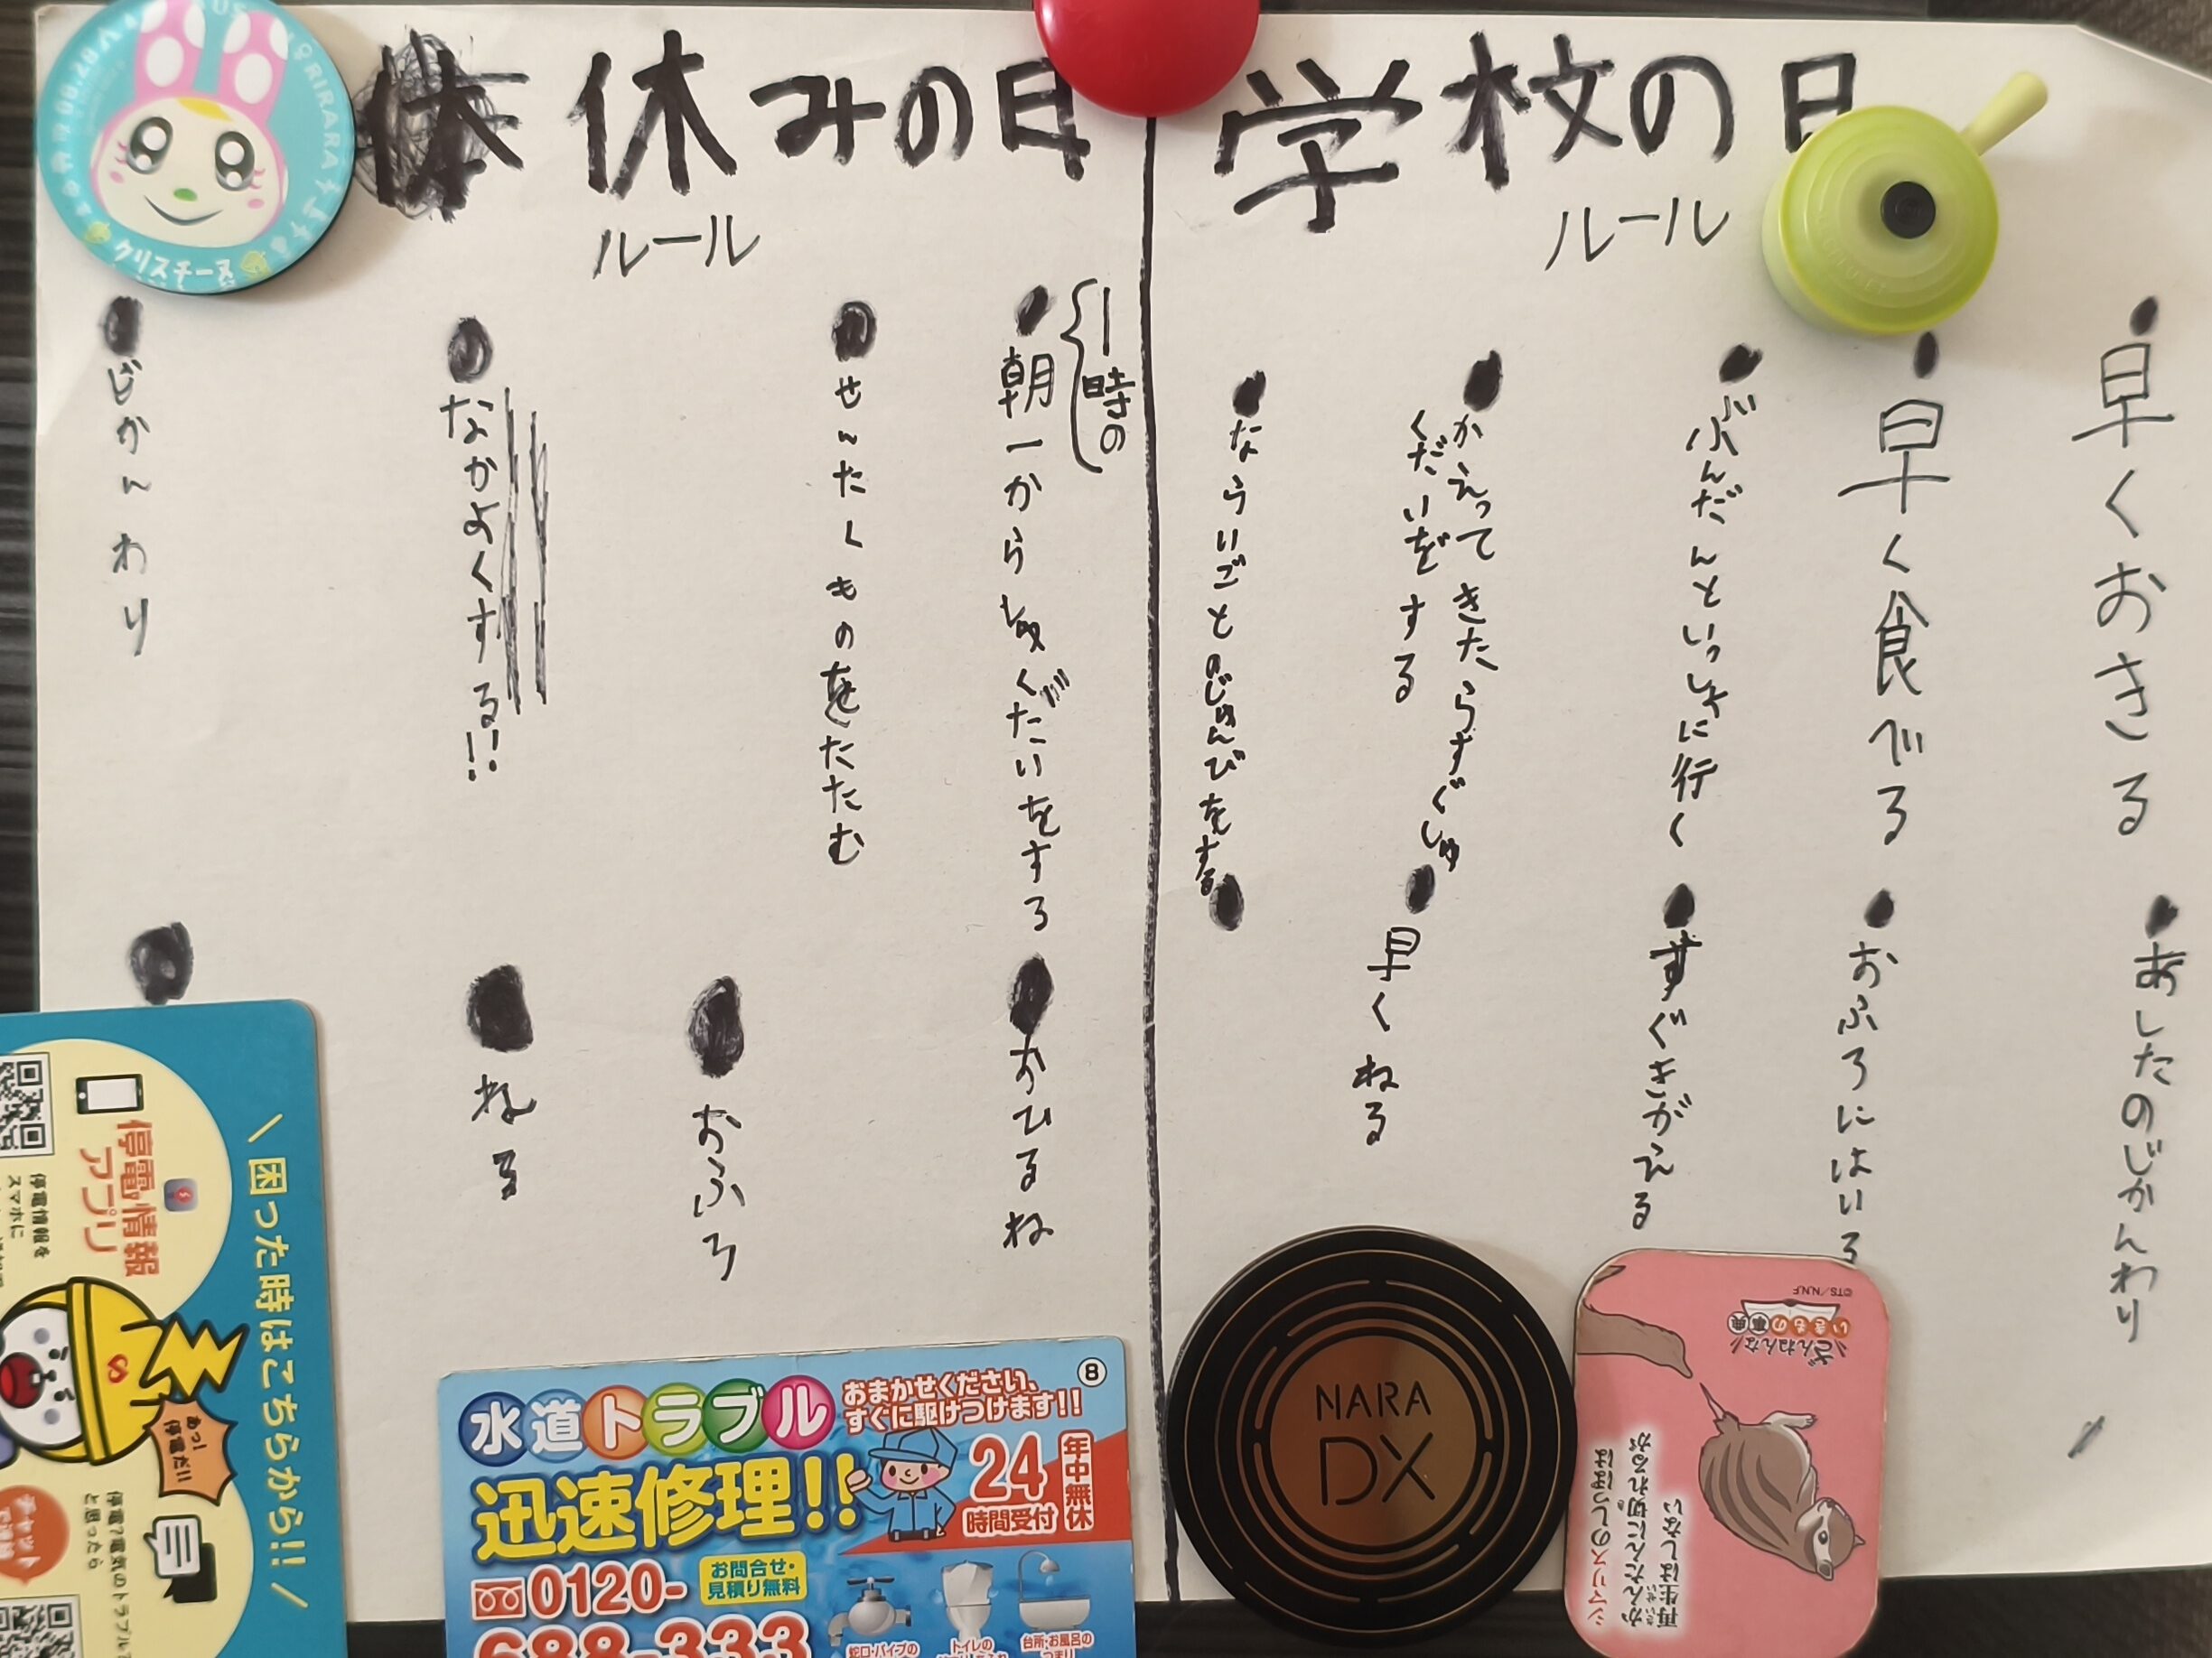 学校の日
ルール
早くおきる
早く食べる
ぶんだんといっしょに行く
かえってきたらすぐしゅ
くだいをする
ならいごとのじゅんびをする
あしたのじかんわり
おふろにはいる
すぐきがえる
早くねる
休みの日
ルール
一時の
朝一からしゅくだいをする
せんたくものをたたむ
なかよくする!!
じかんわり
おひるね
おふろ
ねる
クリスチーヌ
RIRARA
\困った時はこちらから!!/
停電情報
アプリ
停電情報を
スマホに
あっ!
停電だ!!
停電?電気のトラブル?
と思ったら
チャット
水道トラブル
おまかせください、
すぐに駆けつけます!!
8
迅速修理!!
24
時間受付
年中無休
0120-
688-333
お問合せ・
見積り無料
蛇口・パイプの
トイレの
台所・お風呂の
つまり
NARA
DX
©TS/N.N.F
ざんねんな
いきもの事典
シマリスのしっぽは
かんたんに切れるが
再生はしない